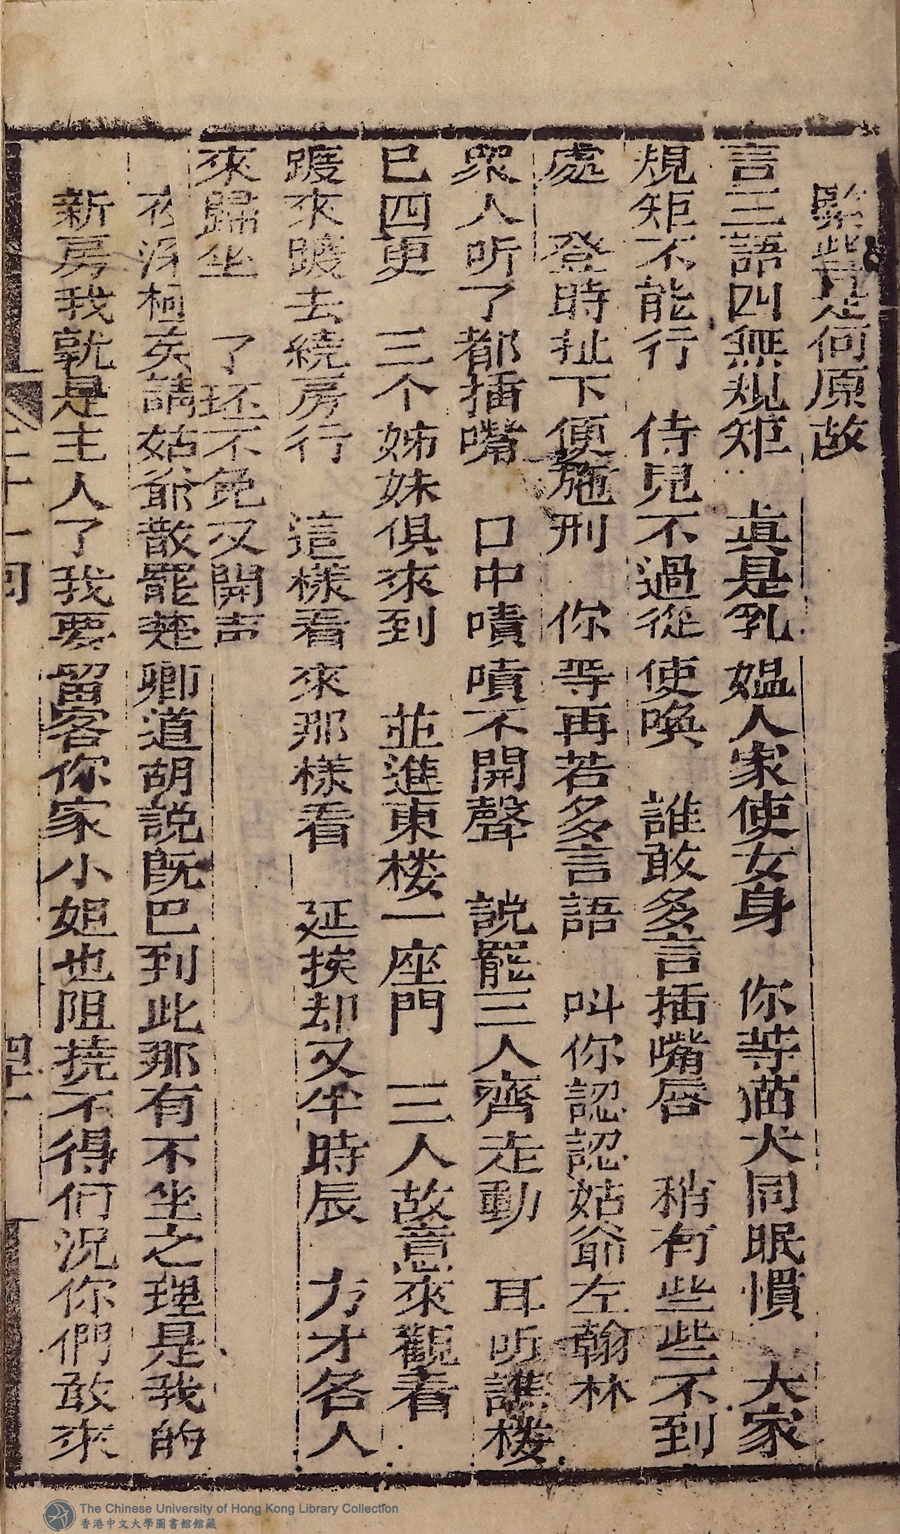 緊些見是何原故
言三語四無規矩 真是乳媪人家使女身 你等猫犬同眠慣 大家
規矩不能行 侍兒不過從使喚 誰敢多言插嘴唇 稍有些些不到
處 登時扯下便施刑 你等再若多言語 叫你認認姑爺左翰林
衆人听了都插嘴 口中嘖嘖不開聲 説罷三人齊走動 耳听譙楼
已四更 三个姊妹俱來到 並進東楼一座門 三人故意來觀看
踱來踱去繞房行 這樣看來那樣看 延挨却又半時辰 方才各人
來歸坐 了坯不免又開声
夜深極矣請姑爺散罷楚卿道胡説既巴到此那有不坐之理是我的
新房我就是主人了我要留客你家小姐也阻撓不得何况你們敢來
二十一回
四十一
The Chinese University of Hong Kong Library Collection
香港中文大學圖書館館藏